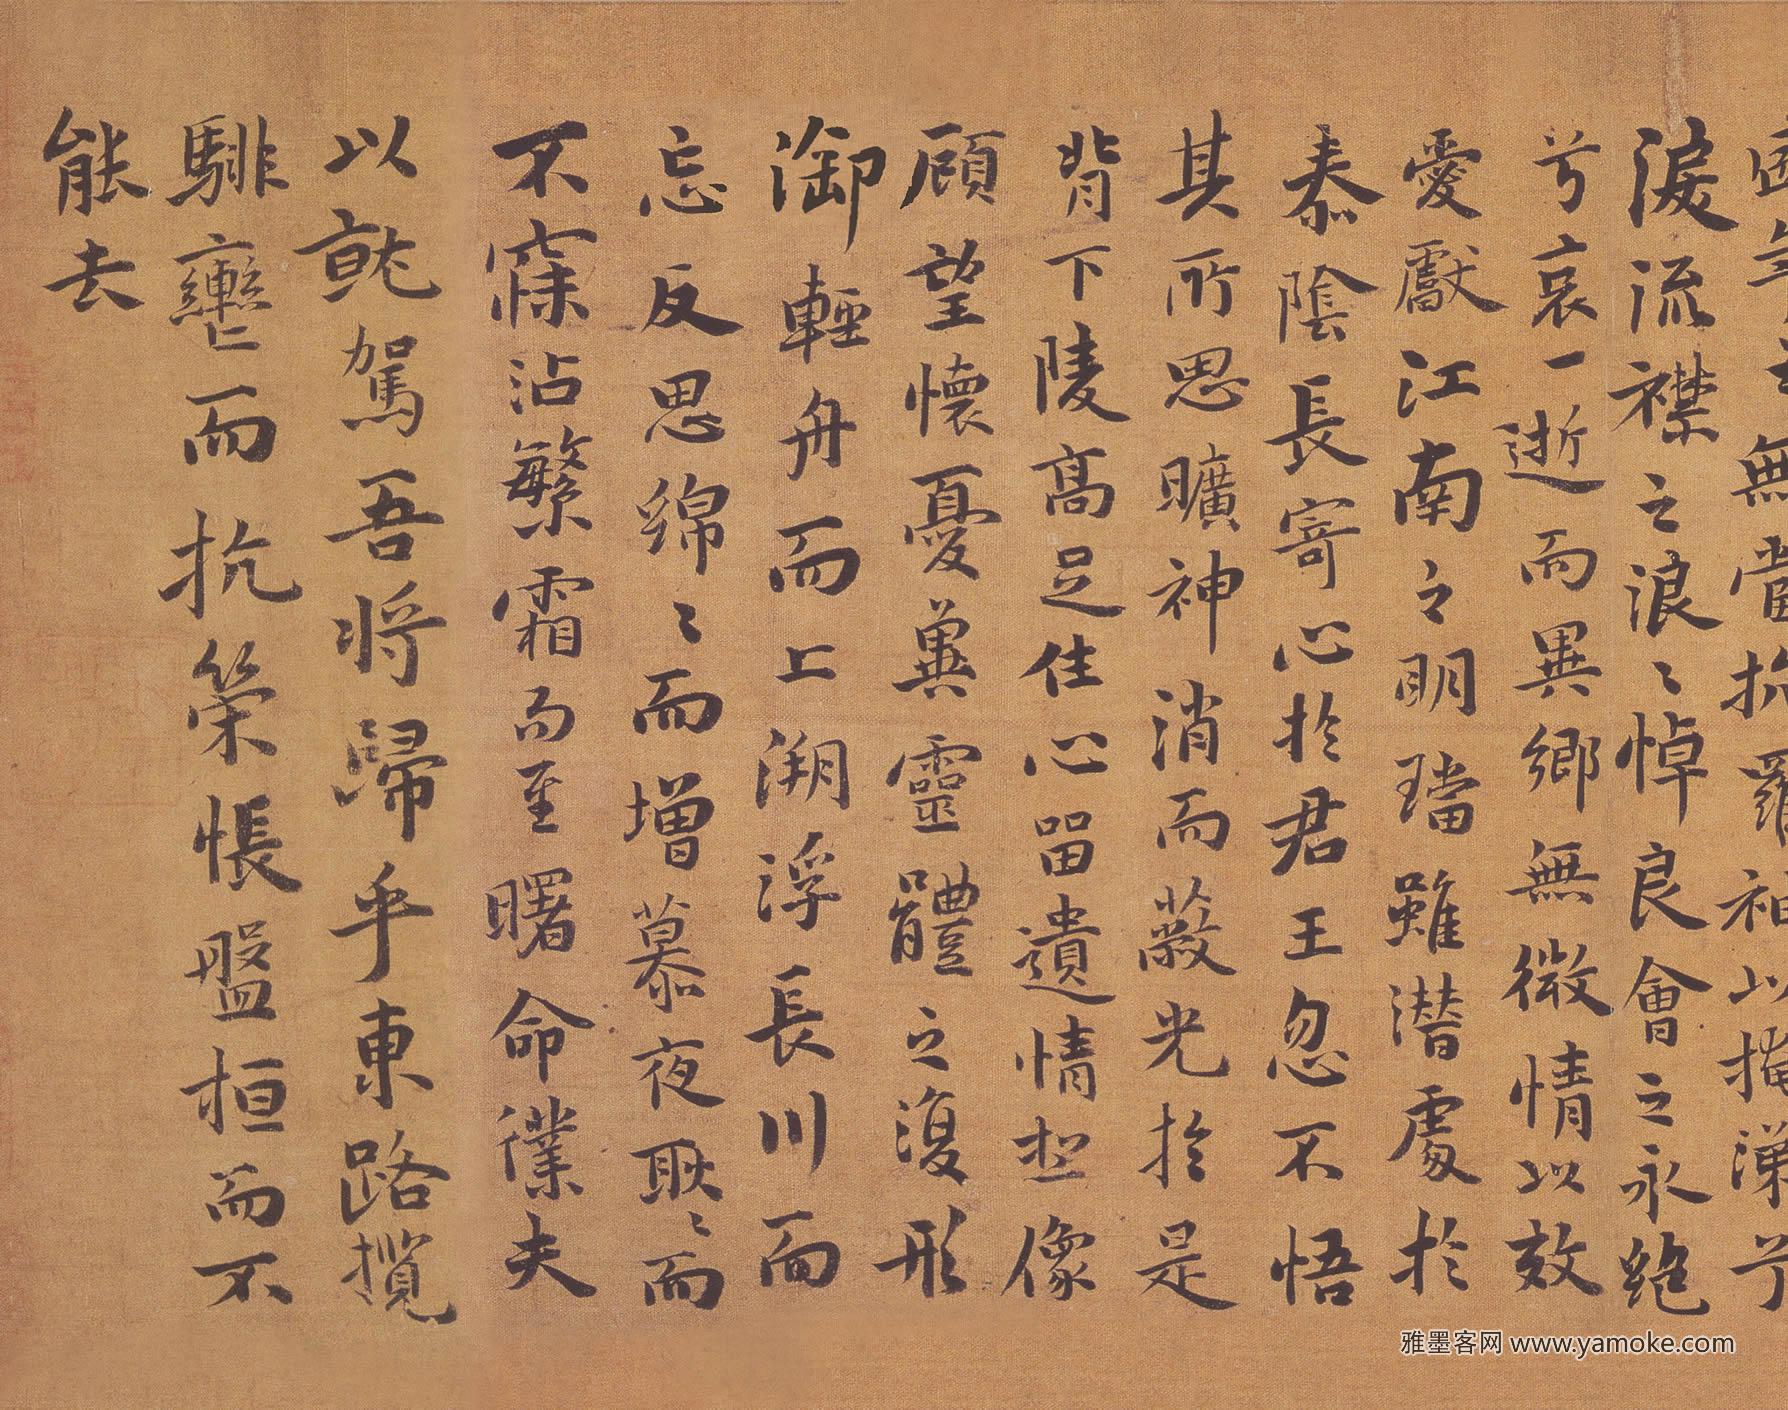 年之無當抗羅袖以掩涕兮
淚流襟之浪〻悼良會之永絕
兮哀一逝而異鄉無微情以效
愛獻江南之明璫雖潛處於
泰陰長寄心於君王忽不悟
其所思曠神消而蔽光於是
背下陵高足住心留遺情想像
顧望懷憂冀靈體之復形
御輕舟而上溯浮長川而
忘反思綿〻而增慕夜耿〻而
不寐沾繁霜而至曙命僕夫
以就駕吾將歸乎東路攬
騑轡而抗策悵盤桓而不
能去
雅墨客网 www.yamoke.com